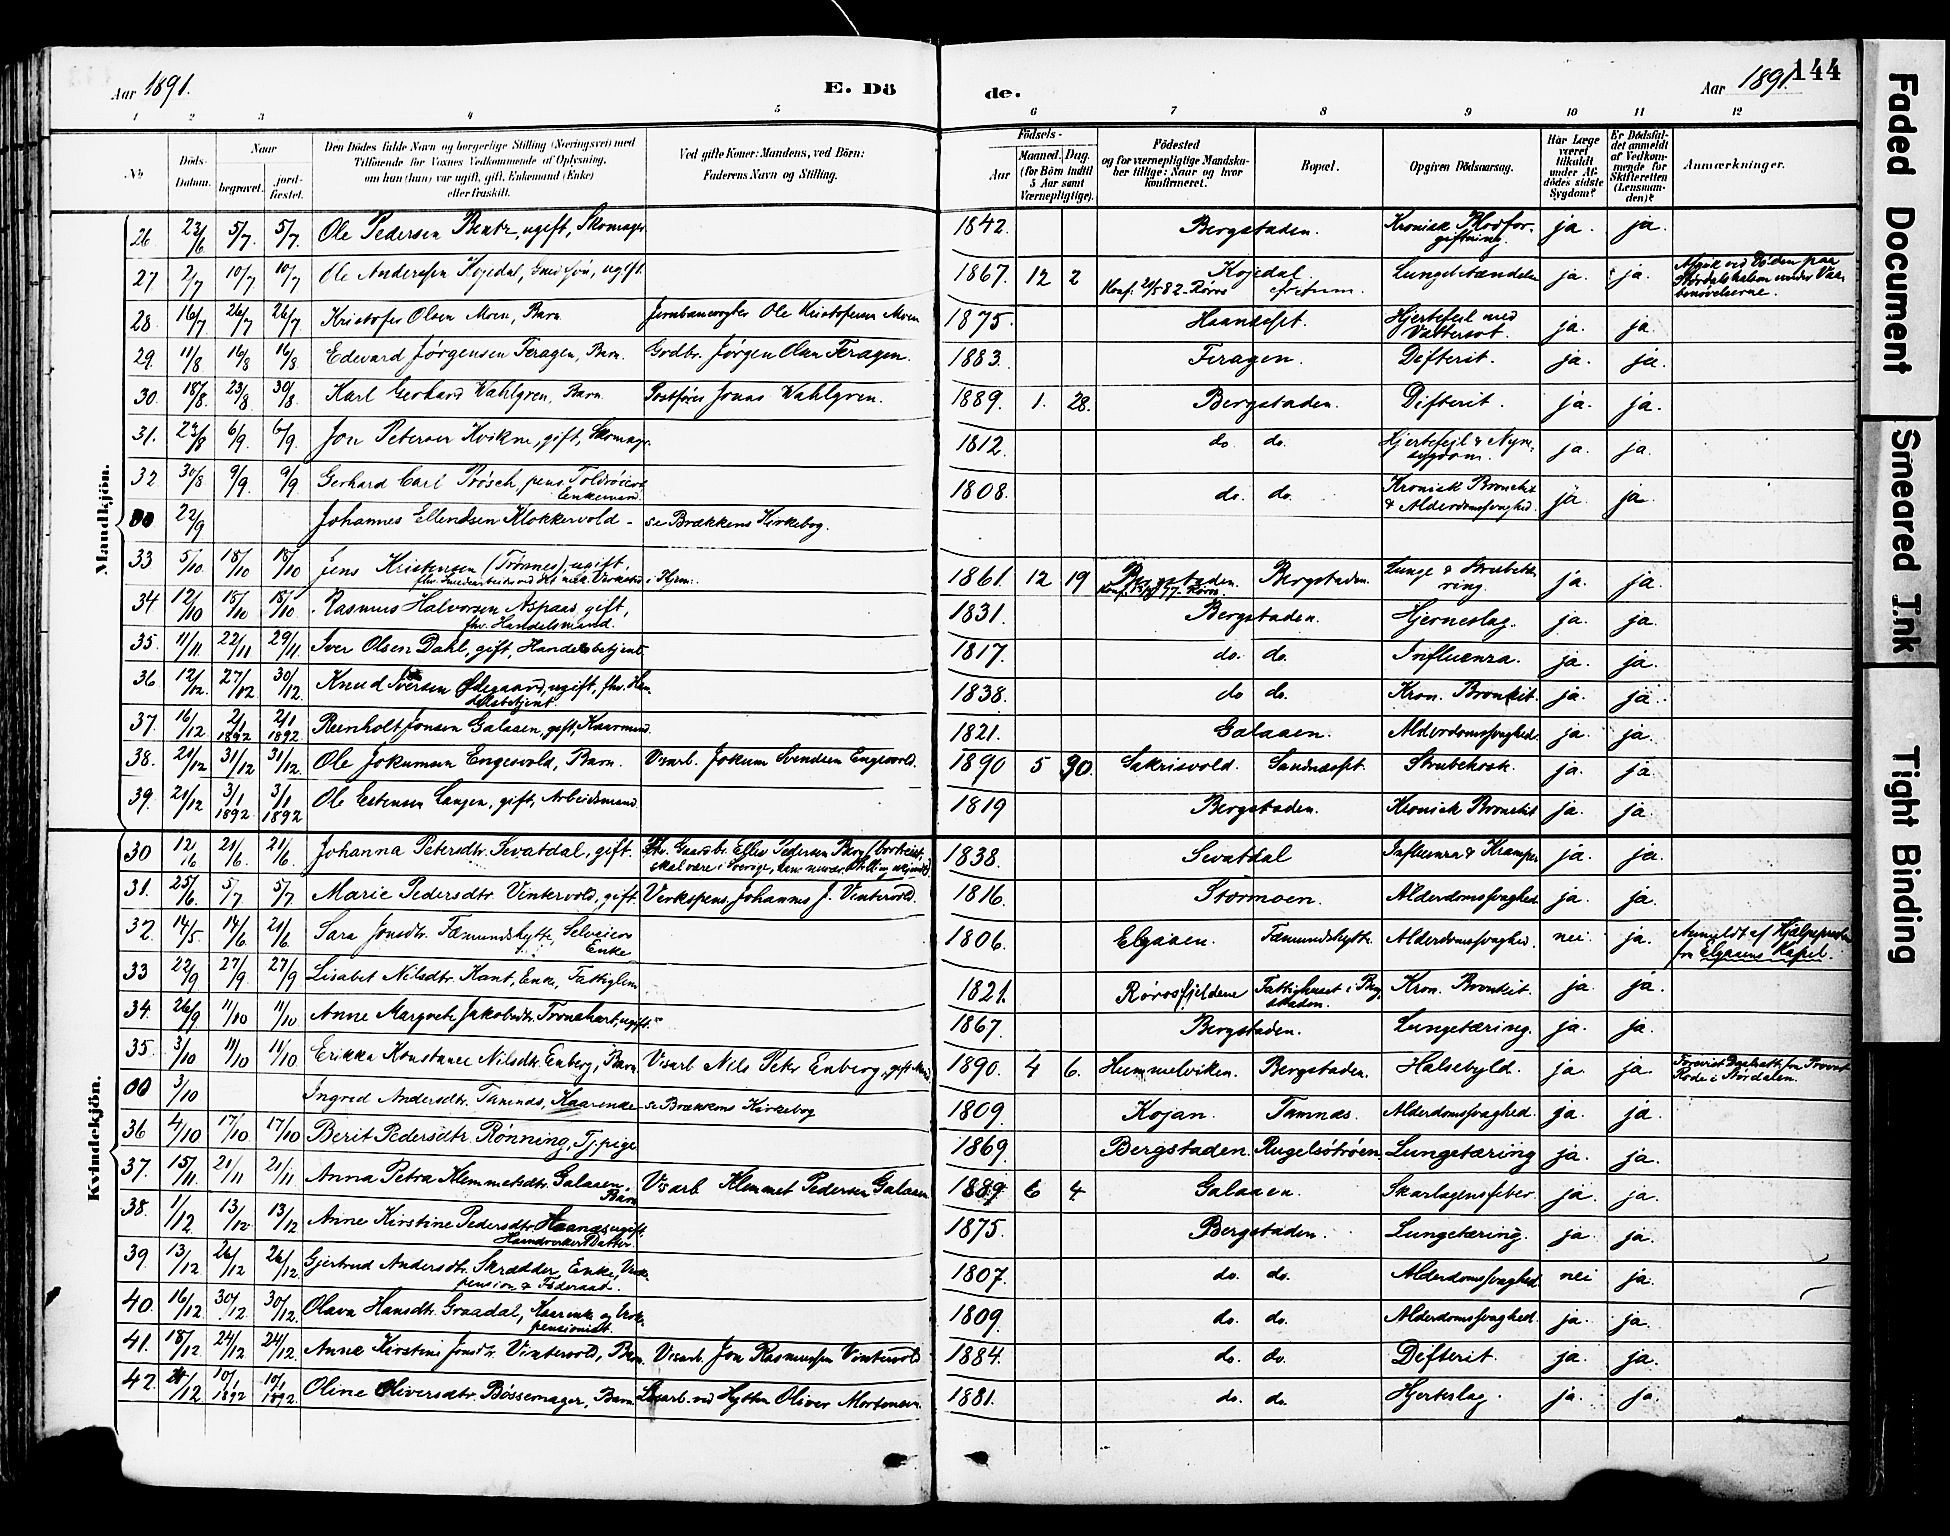 Aar 1891. E. Dö de. Aar 1891. 144
1 2 3 4 5 6 7 8 9 10 11 12
No Döds-Datum. Naar begravet. jord-fæstet. Den Dödes fulde Navn og borgerlige Stilling (Næringsvei) med Tilföiende for Voxnes Vedkommende af Oplysning, om han (hun) var ugift, gift, Enkemand (Enke) eller fraskilt. Ved gifte Koner: Mandens, ved Börn: Faderens Navn og Stilling. Födsels- Aar Maaned. Dag. (for Börn indtil 5 Aar samt Værnepligtige). Födested og for værnepligtige Mandskaber tillige: Naar og hvor konfirmeret. Bopæl. Opgiven Dödsaarsag. Har Læge været tilkaldt under Afdödes sidste Sygdom? Er Dödsfaldet anmeldt af Vedkommende for Skifteretten (Lensmanden)? Anmærkninger.
Mandkjön.
26 23/6 5/7. 5/7. Ole Pedersen Bentz, ugift, Skomager 1842. Bergstaden. Kronisk Blodforgiftning. ja. ja.
27 2/7 10/7 10/7 Ole Anderssen Kojedal, ugift. 1867. 12 2 Kojedal Konf. 82 Røros Lungebetændelse ja. ja. ved Døden paa under Vaabenøvelserne.
28. 16/7 26/7 26/7 Kristofer Olsen Moen, Barn. Jernbanevogter Ole Kristofersen Moen 1875. Haandset. Hjertefeil med Vattersot. ja. ja.
29. 11/8 16/8 16/8 Edevard Jørgensen Feragen, Barn. Grdbr. Jørgen Olsen Feragen. 1883. Feragen. Difterit. ja. ja.
30. 18/8. 23/8 30/8. Karl Gerhard Wahlgren, Barn. Postfører Jonas Wahlgren. 1889. 1. 28. Bergstaden. Difterit. ja. ja.
31. 23/8 6/9. 6/9. Jon Petersen Kvikne, gift, Skomager 1812. do. do. Hjertefeil & Nyresygdom. ja. ja.
32 30/8 9/9. 9/9. Gerhard Carl Bösch, pens. Enkemand. 1808. do. do. Kronisk Bronchit & Alderdomssvaghed. ja ja
00 22/9 Johannes Ellendsen Klokkervold - se Brækkens Kirkebog.
33 5/10 18/10 18/10 Jens Kristensen (Trønnes), ugift, 1861. 12 19 Bergstaden. Konf. 77. Røros. Bergstaden. Lunge & Strubetæring. ja. ja.
34 12/10 18/10 18/10. Rasmus Halvorsen Aspaas, gift, fhv. Handelsmand. 1831. Bergstaden. Hjerneslag. ja. ja.
35. 11/11 22/11 29/11 Iver Olsen Dahl, gift, Handelsbetjent 1817. do. do. Influenza. ja. ja.
36 12/12. 27/12 30/12. Knud Iversen Ødegaard, ugift, fhv. Handelsbetjent 1838. do do. Kron. Bronkit. ja. ja.
37. 16/12 2/1 1892 2/1 1892 Reinholt Jonsen Galaaen, gift, Kaarmand. 1821. Galaaen. Alderdomssvaghed. ja. ja.
38. 21/12 31/12 31/12. Ole Jokumsen Engesvold, Barn. Vrarb. Jokum Svendsen Engesvold. 1890 5 30. Sakrisvold. Sandnæsset. Strubehoste. ja. ja.
39. 21/12 3/1 1892. 3/1 1892 Ole Estensen Langen, gift, Arbeidsmand. 1819 Bergstaden. Kronisk Bronchit ja. ja.
Kvindekjön.
30 12/6 21/6. 21/6. Johanna Petersdtr. Sevatdal, gift. Fhv. Gaardbr. Ellev Pedersen skal være i Sverige, 1838. Sevatdal Influenza & Kramper ja. ja.
31. 25/6. 5/7 5/7 Marie Pedersdtr. Vintervold, gift. Verkspens. Johannes J. Vintervold. 1816. Stormoen. Alderdomssvaghed ja. ja.
32. 14/5 14/6 21/6. Sara Jonsdtr. Fæmundshytte, Selveiers Enke 1806. Elgaaen. Fæmundshytte. Alderdomssvaghed. nei ja. Anmeldt af Hjælpepresten fra Elgaaens Kapel.
33 22/9 27/9 27/9 Lisabet Nilsdtr. Kant, Enke, Fattiglem 1821. Rørosfjeldene Fattighuset i Bergstaden. Kron. Bronkit. ja ja.
34. 26/9 11/10 11/10 Anne Margrete Jakobsdtr. Tronshart, ugift. 1867. Bergstaden. Lungetæring. ja. ja.
35. 3/10 11/10 11/10 Erikka Konstance Nilsdtr. Enberg, Barn Vrarb. Nils Peter Enberg, gift Mand. 1890. 4 6. Hummelviken. Bergstaden. Halsebyld. ja. ja. Stördalen.
00 3/10 Ingred Andersdtr. Tamnes, Kaarenke se Brækkens Kirkebog 1809. Kojan. Tamnæs. Alderdomssvaghed. ja. ja
36 4/10 17/10 17/10 Berit Pedersdtr. Rønning, Tj. pige 1869. Bergstaden. Rugelsøtrøen. Lungetæring ja. ja.
37. 15/11 21/11 21/11 Anna Petra Klemmetsdtr. Galaaen, Barn Vrarb. Klemmet Pedersen Galaaen 1889 6 4 Galaaen. Skarlagensfeber. ja. ja.
38. 1/12 13/12 13/12 Anne Kirstine Pedersdtr. Haanes, ugift, Haandverkers Datter. 1875. Bergstaden. Lungetæring. ja ja.
39. 13/12 26/12 26/12. Gjertrud Andersdtr. Skrædder, Enke, pension & Föderaad. 1807. do. do. Alderdomssvaghed nei ja.
40. 16/12 30/12 30/12. Olava Hansdtr. Graadal, Kaarenke og Verkspensionist. 1809. do. do. Alderdomssvaghed. ja. ja.
41. 18/12 24/12 24/12. Anne Kirstine Jonsdtr. Vintervold, Barn. Vrarb. Jon Rasmussen Vintervold 1884. do. do. Difterit. ja. ja.
42. /12 10/1 1892 10/1 1892. Oline Oliversdtr. Bössemager, Barn ved Hytten Oliver Mortensen. 1881. do. do. Hjerteslag. ja. ja.
Faded Document
Smeared Ink
Tight Binding